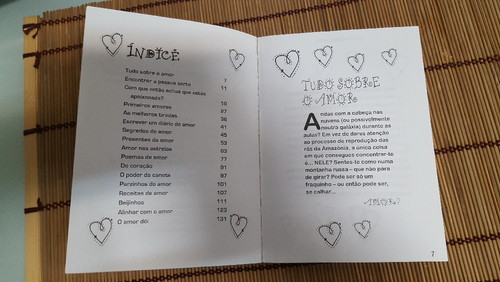 ÍNDICE
Tudo sobre o amor 7
Encontrar a pessoa certa 11
Com que então achas que estás
apaixonada? 
Primeiros amores
As melhores tiradas
Escrever um diário de amor
Segredos de amor 45
Presentes de amor 53
Amor nas estrelas 63
Poemas de amor 77
Do coração
O poder da caneta
Parzinhos de amor 101
Receitas de amor 107
Beijinhos 111
Alinhar com o amor 123
O amor dói 131
TUDO SOBRE
O AMOR
Andas com a cabeça nas
nuvens (ou possivelmente
noutra galáxia) durante as
aulas? Em vez de dares atenção
ao processo de reprodução das
rãs da Amazónia, a única coisa
em que consegues concentrar-te
é... NELE? Sentes-te como numa
montanha russa – que não para
de girar? Pode ser só um
fraquinho – ou então pode ser,
se calhar...
AMOR?
7